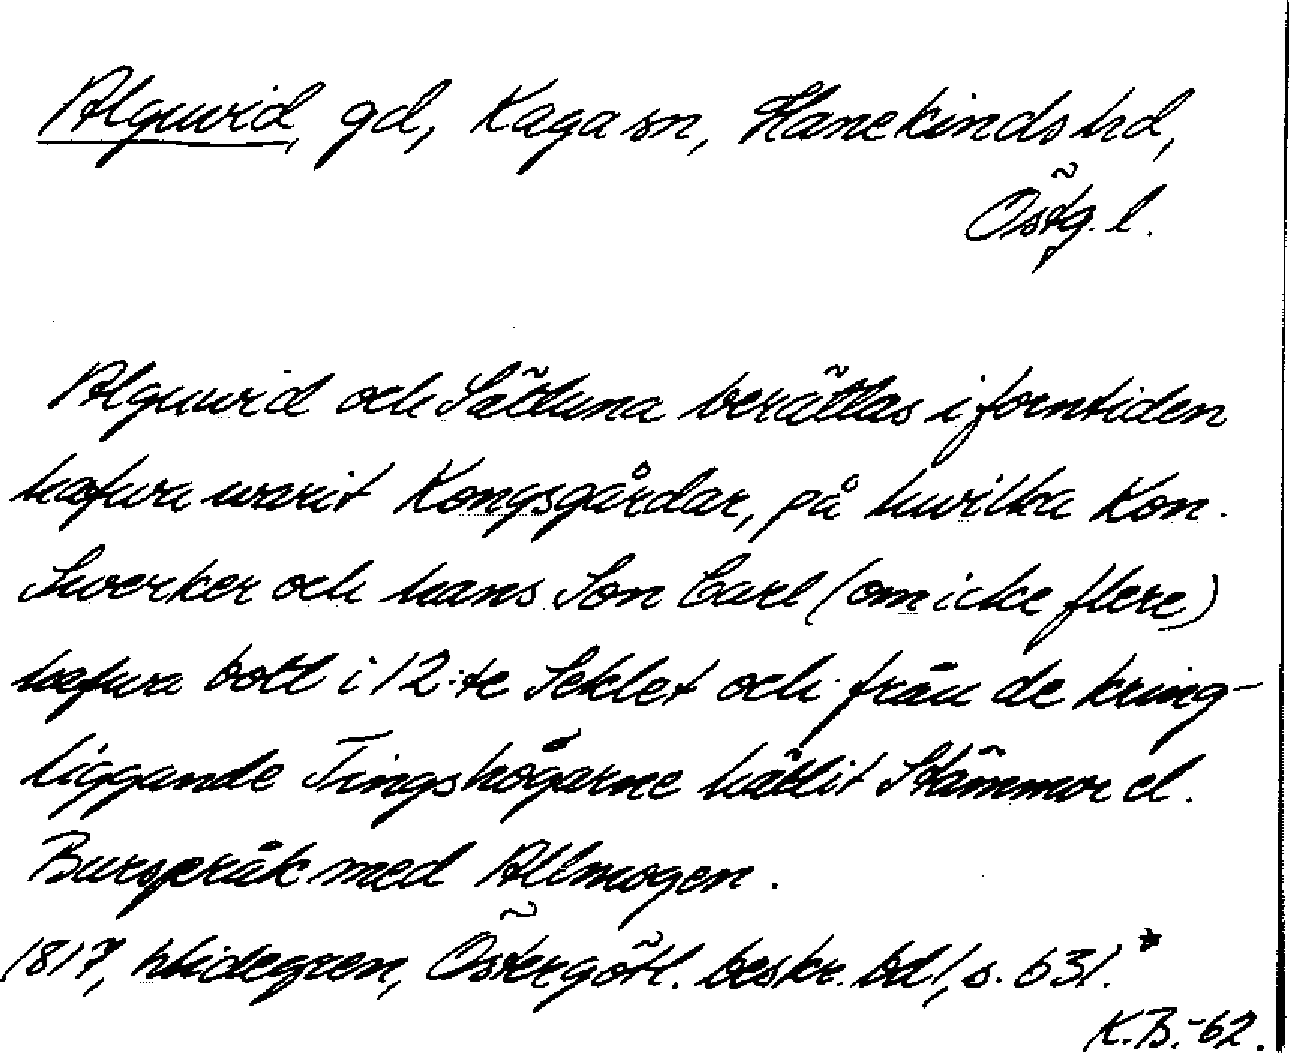 Alguvid, gd, Kaga sn, Hanekinds hd,
Östg. l.
Alguvid och Sätuna berättas i forntiden
hafva warit Kongsgårdar, på hwilka Kon.
Swerker och hans Son Carl (om icke flere)
hafva bott i 12:te Seklet och från de kring-
liggande Tingshögarne hållit Stämmor el.
Burspråk med Allmogen.
1817, Widegren, Östergötl. beskr. bd 1, s. 631.*
K.B.-62.